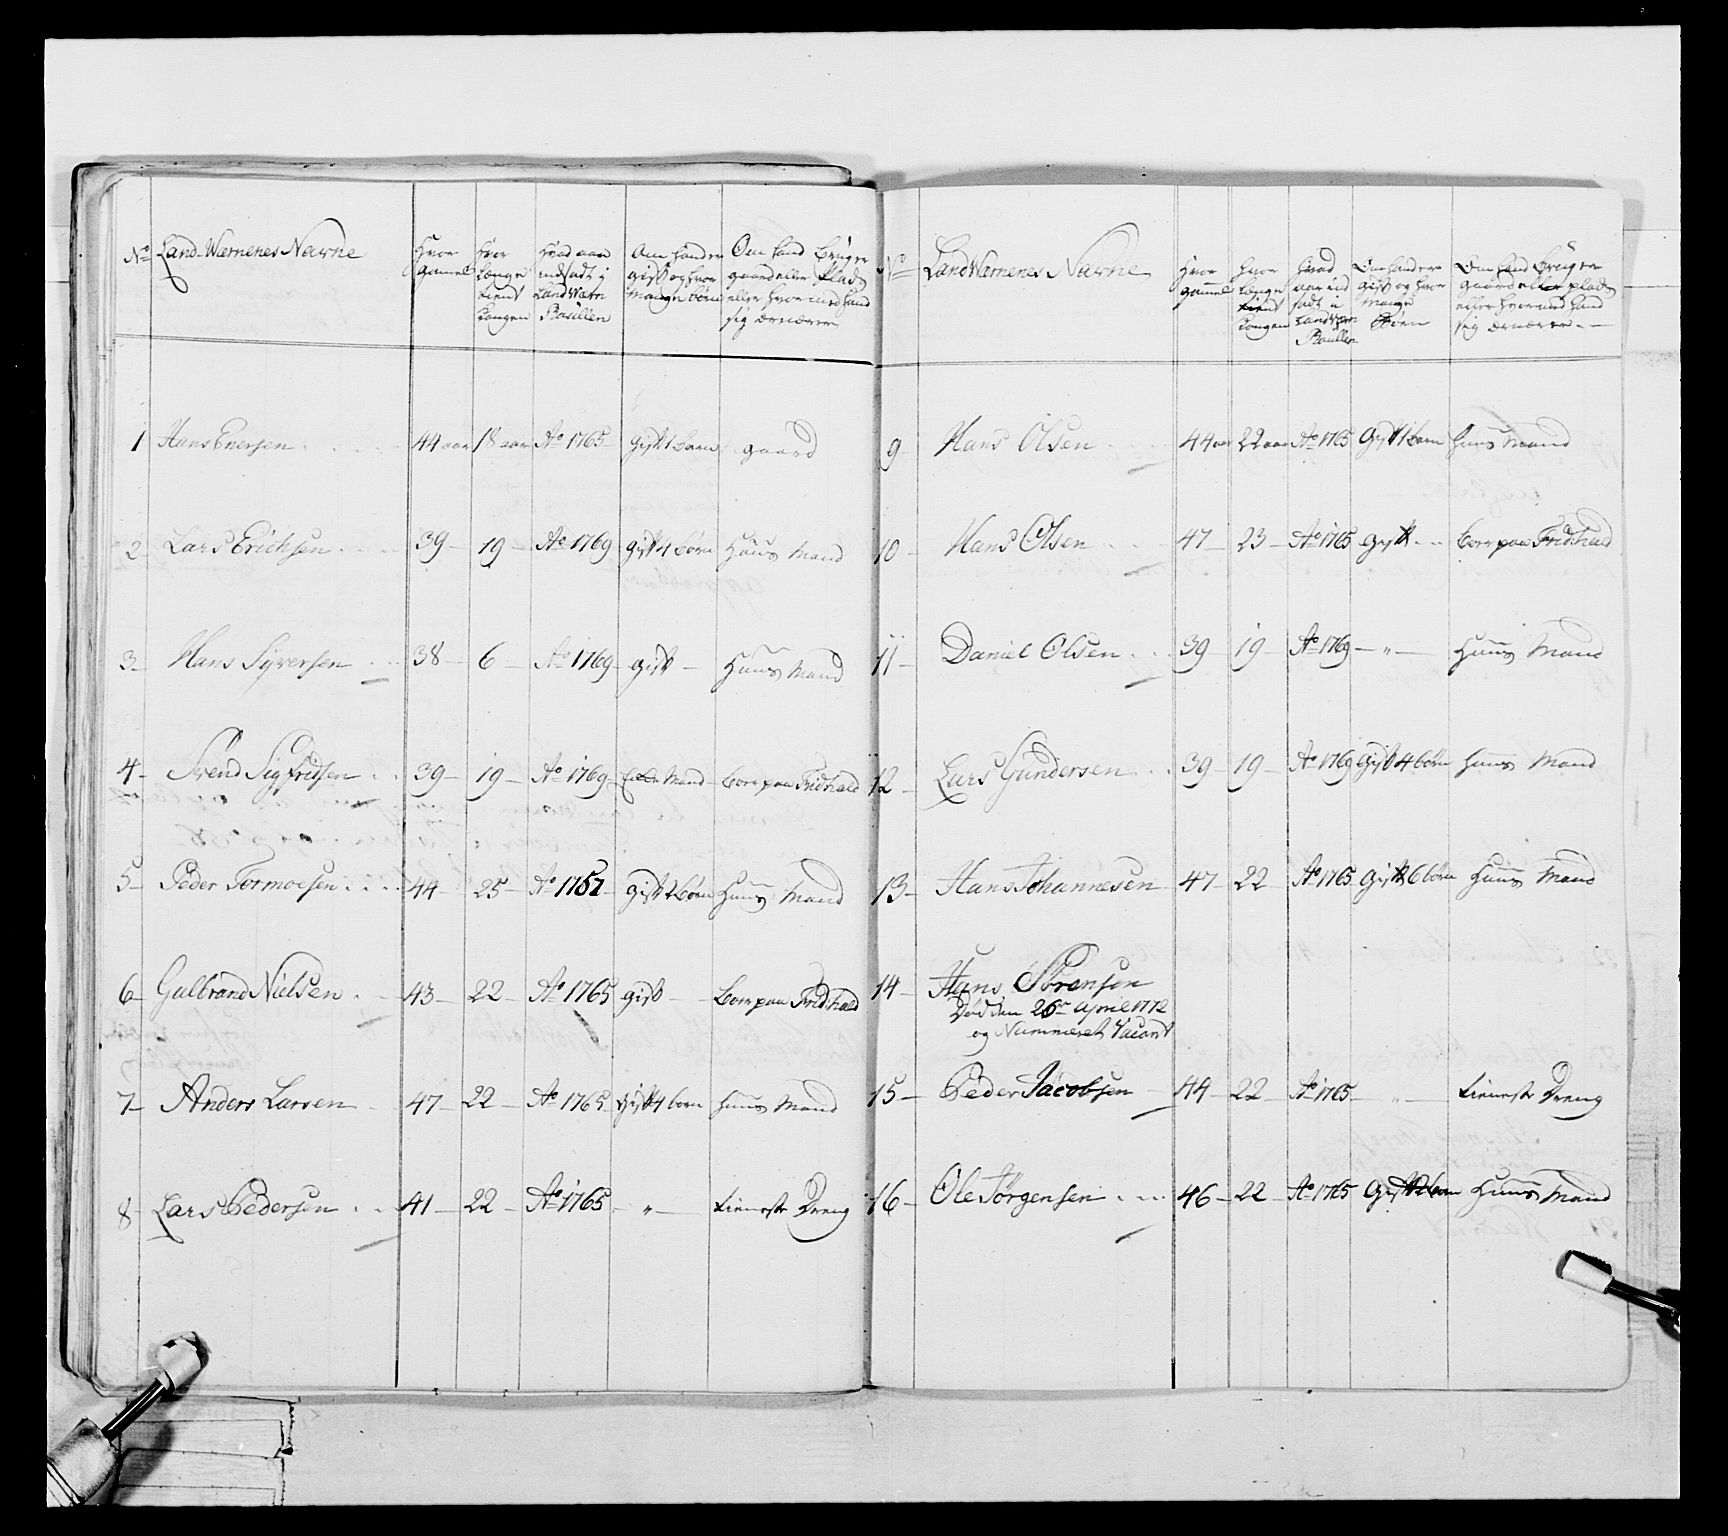 No Land-Wærnenes Navne | Hvor gammel | Hvor Længe tient Kongen | Hvad aar indsadt i Land Wærn Roullen | Om hand er gift og hvor mange børn | Om hand bruger gaard eller Plads eller hvor med hand sig ernærer
1 Hans Enersen 44 aar 18 aar Ao 1765 gift 1 barn gaard
2 Lars Erichsen 39 19 Ao 1769 gift 4 børn Huus Mand
3 Hans Syversen 38 6 Ao 1769 gift Huus Mand
4 Svend Sigfridsen 39 19 Ao 1769 Enke Mand boer paa Fridhald
5 Peder Tormoesen 44 25 Ao 1757 gift 2 børn Huus Mand
6 Gulbrand Nielsen 43 22 Ao 1765 gift boer paa Fridhald
7 Anders Larsen 47 22 Ao 1765 gift 4 born Huus Mand
8 Lars Pedersen 41 22 Ao 1765 " tieneste Dreng
No Land Wærnenes Navne | Hvor gammel | hvor længe tient Kongen | hvad aar ind sadt i LandVærn Roullen | Om hand er gift og hvor mange Børn | Om hand bruger gaard eller plads eller hvor med hand sig ernærer
9 Hans Olsen 44 aar 22 aar Ao 1765 Gift 1 barn huus Mand
10 Hans Olsen 47 23 Ao 1765 gift boer paa Fridhald
11 Daniel Olsen 39 19 Ao 1769 " Huus Mand
12 Lars Gundersen 39 19 Ao 1769 Gift 4 børn huus Mand
13 Hans Johannesen 47 22 Ao 1765 Gift 6 børn Huus Mand
14 Hans Sörensen
Död den 26de April 1772
og Nummeret Vacant
15 Peder Jacobsen 44 22 Ao 1765 " tieneste Dreng
16 Ole Jörgensen 46 22 Ao 1765 Gift 2 børn Huus Mand